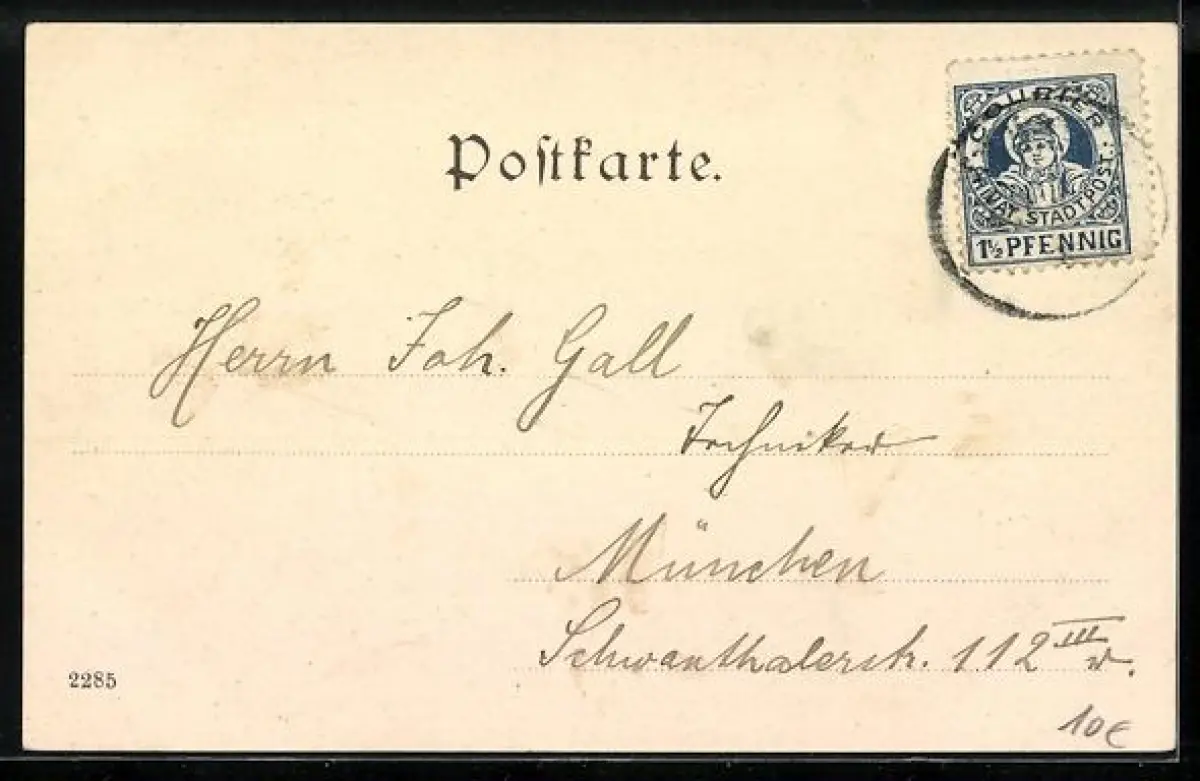 Postkarte.
COURIER
PRIVAT STADTPOST.
1½ PFENNIG
Herrn Joh. Gall
Techniker
München
Schwanthalerstr. 112 III r.
2285
10€